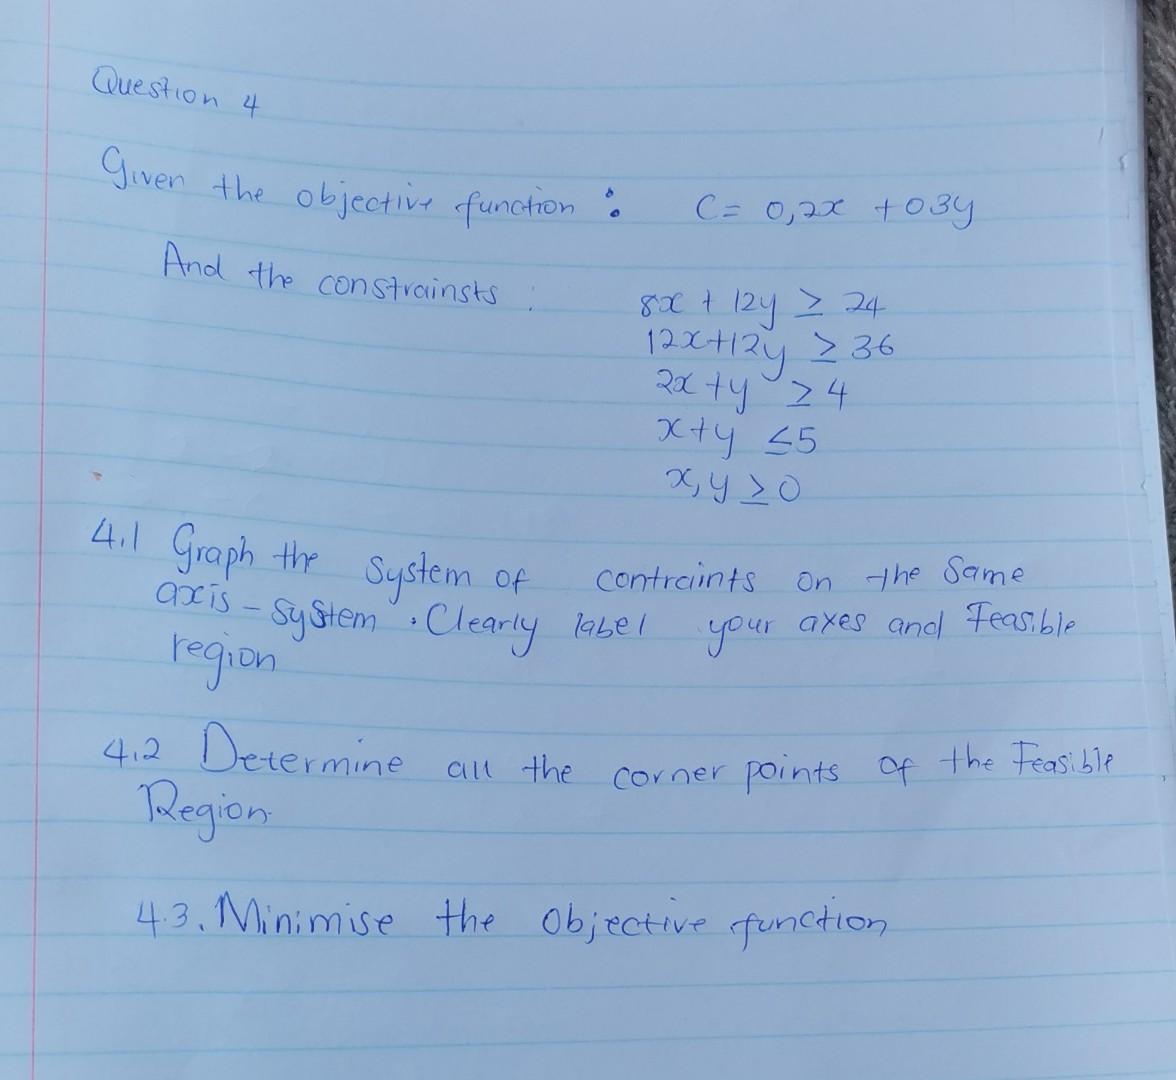 Question 4
Given the objective function : C= 0,2x + 03y
And the constrainsts :
8x + 12y ≥ 24
12x+12y ≥ 36
2x +y ≥ 4
x+y ≤5
x, y ≥ 0
4.1 Graph the system of contraints on the same
axis - system . Clearly label your axes and Feasible
region
4.2 Determine all the corner points of the Feasible
Region.
4.3. Minimise the Objective function